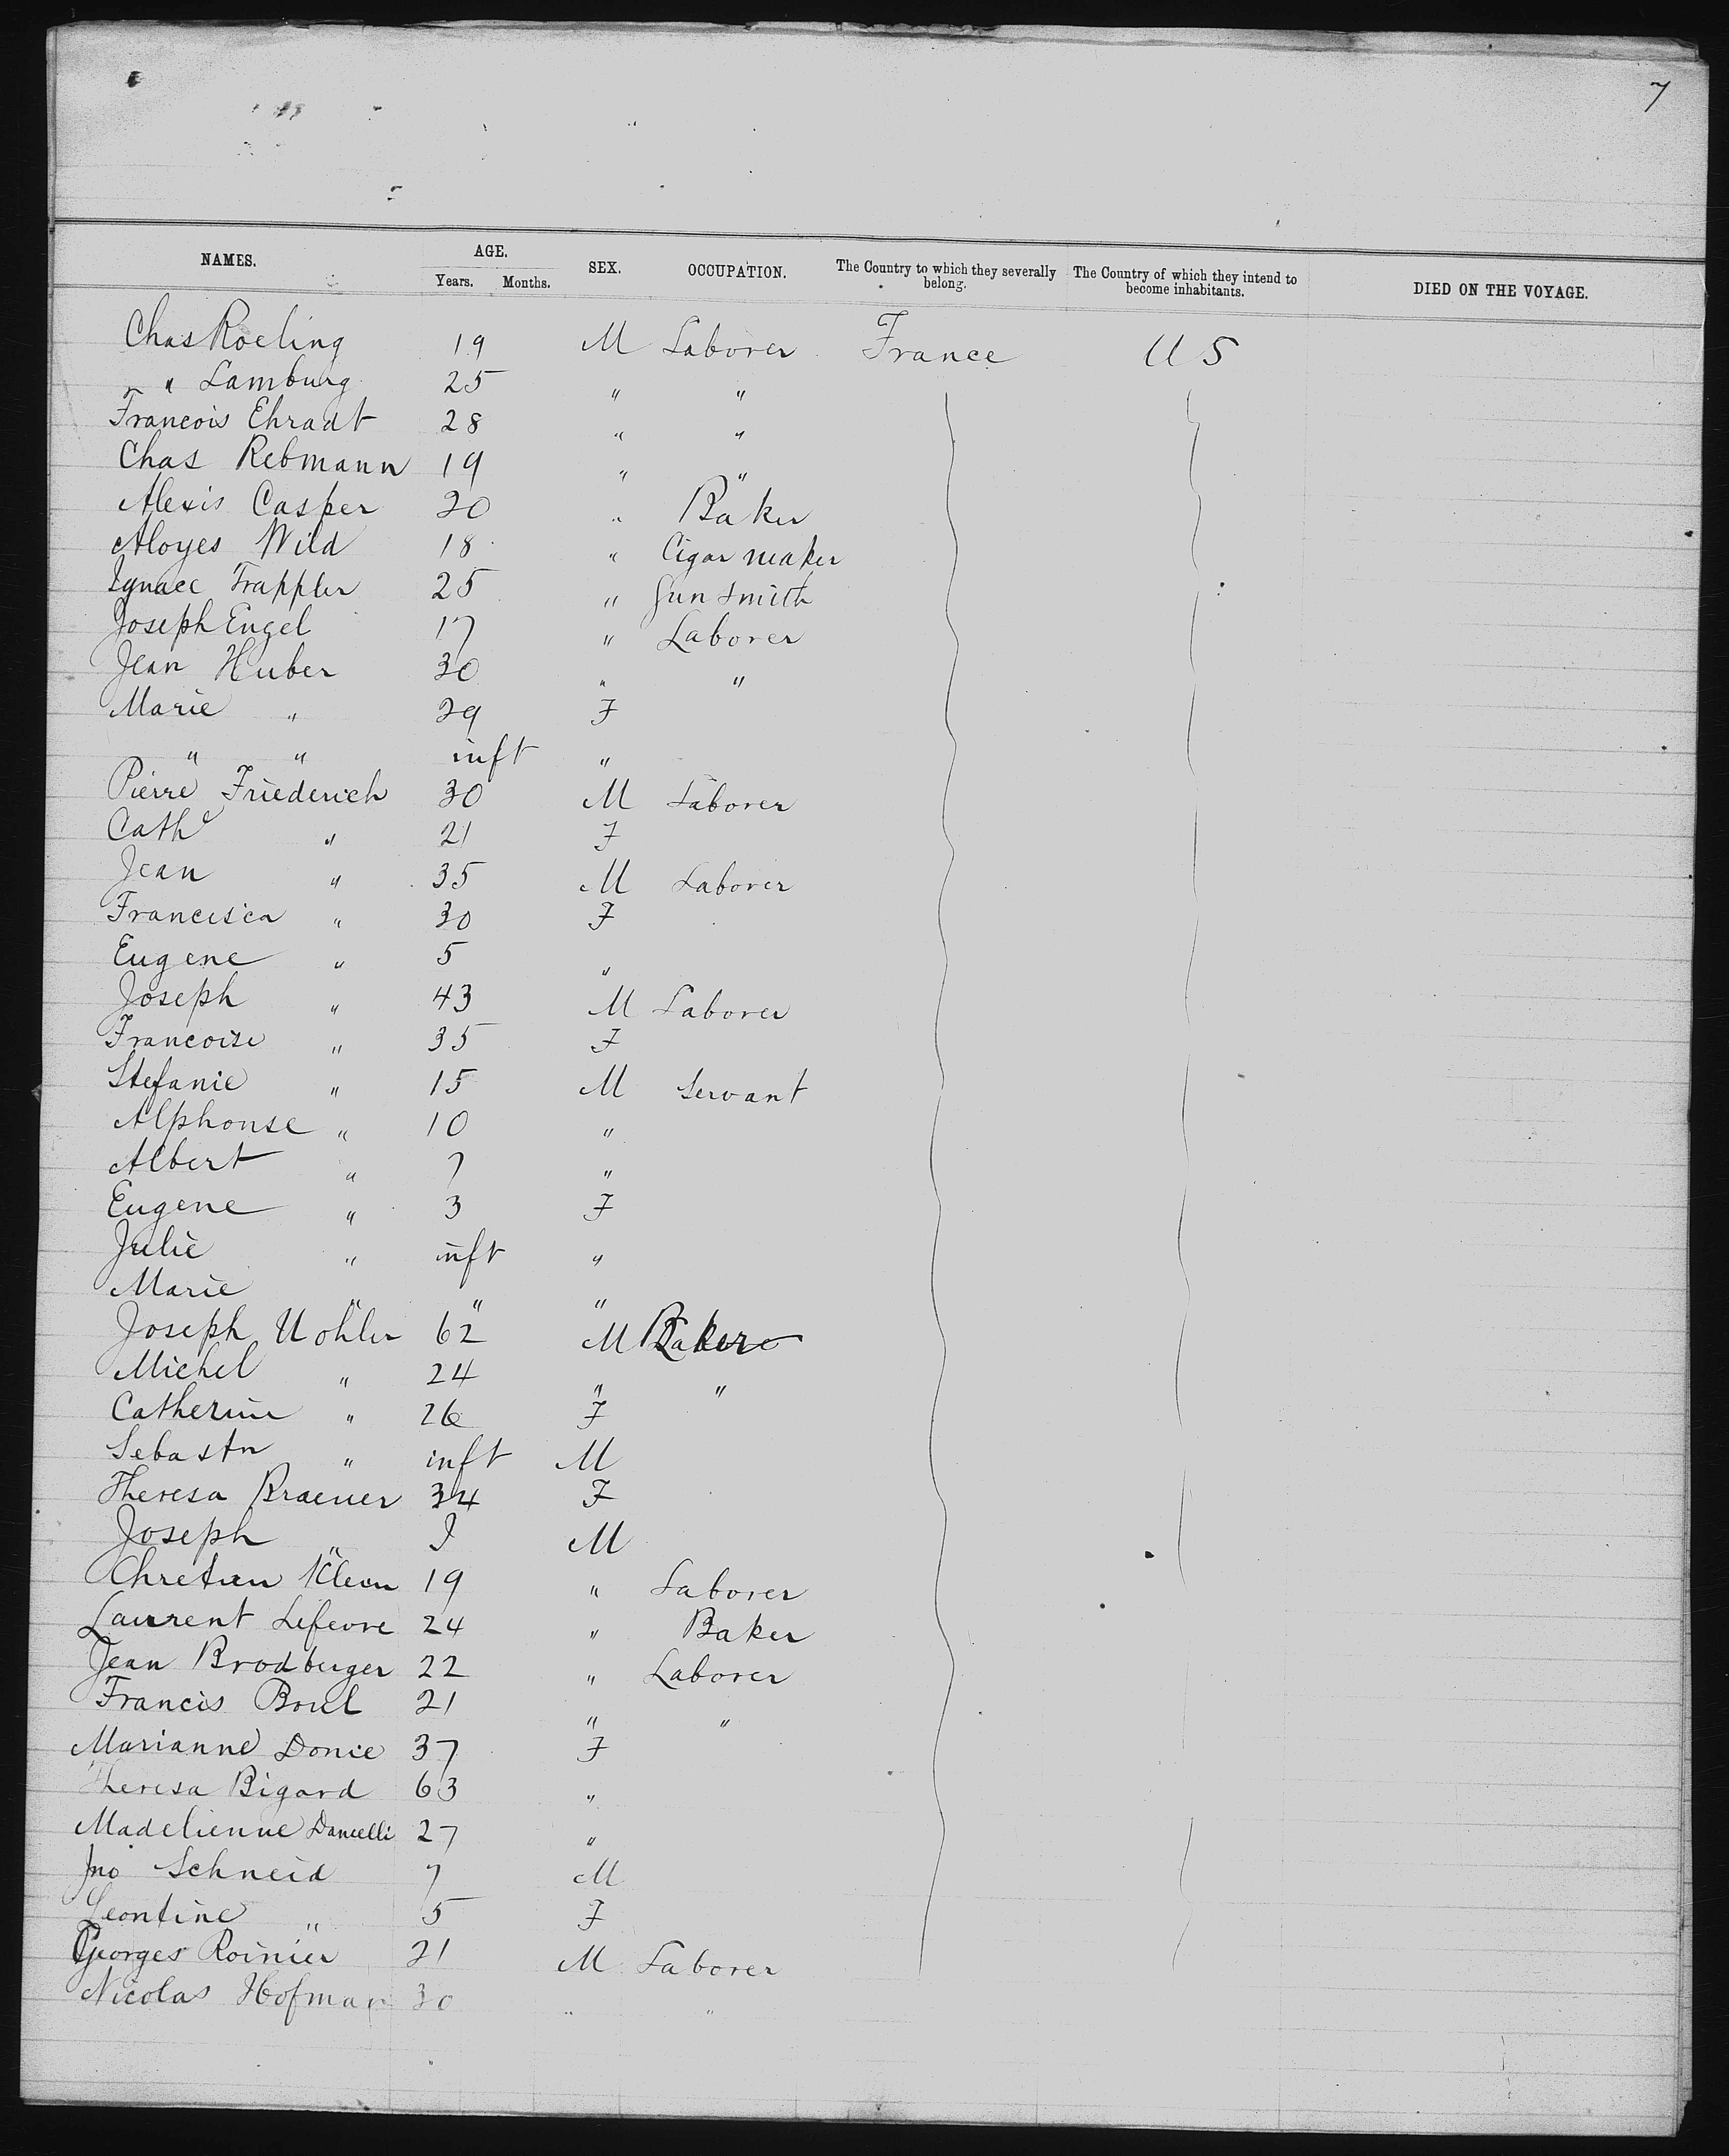 7
NAMES. AGE. SEX. OCCUPATION. The Country to which they severally belong. The Country of which they intend to become inhabitants. DIED ON THE VOYAGE.
Years. Months.
Chas Roeling 19 M Laborer France U S
" Lamburg 25 " "
Francois Ehradt 28 " "
Chas Rebmann 19 " "
Alexis Casper 20 " Baker
Aloyes Wild 18 " Cigar maker
Ignace Trappler 25 " Gun Smith
Joseph Engel 17 " Laborer
Jean Huber 30 " "
Marie " 29 F
" " inft "
Pierre Friederich 30 M Laborer
Cath " 21 F
Jean " 35 M Laborer
Francisca " 30 F
Eugene " 5 "
Joseph " 43 M Laborer
Francoise " 35 F
Stefanie " 15 M Servant
Alphonse " 10 "
Albert " 7 "
Eugene " 3 F
Julie " inft "
Marie " " "
Joseph Wohler 62 M Baker
Michel " 24 " "
Catherine " 26 F
Sebastn " inft M
Theresa 34 F
Joseph " M
Chretien Klein 19 " Laborer
Laurent Lefevre 24 " Baker
Jean Brodberger 22 " Laborer
Francis 21 " "
Marianne Donie 37 F
Theresa Bigard 63 "
Madelienne 27 "
Jno Schneid 7 M
Leontine " 5 F
Georges Roinier 21 M Laborer
Nicolas Hofman 30 " "